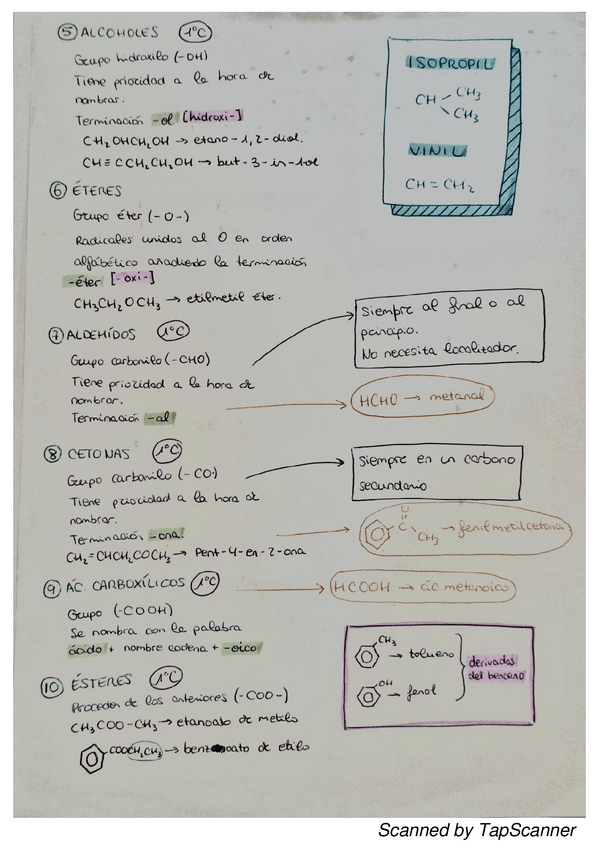 ⑤ ALCOHOLES 1°C
Grupo hidroxilo (-OH)
Tiene prioridad a la hora de
nombrar.
Terminación -ol [hidroxi-]
CH₂OHCH₂OH → etano-1,2-diol.
CH≡CCH₂CH₂OH → but-3-in-1-ol
⑥ ÉTERES
Grupo éter (-O-)
Radicales unidos al O en orden
alfabético anadiendo la terminación
-éter [-oxi-]
CH₃CH₂OCH₃ → etilmetil éter.
⑦ ALDEHÍDOS 1°C
Grupo carbonilo (-CHO)
Tiene prioridad a la hora de
nombrar.
Terminación -al
⑧ CETONAS 1°C
Grupo carbonilo (-CO-)
Tiene prioridad a la hora de
nombrar.
Terminación -ona.
CH₂=CHCH₂COCH₃ → Pent-4-en-2-ona
⑨ ÁC. CARBOXÍLICOS 1°C
Grupo (-COOH)
Se nombra con la palabra
ácido + nombre cadena + -oico
⑩ ÉSTERES 1°C
Proceden de los anteriores (-COO-)
CH₃COO-CH₃ → etanoato de metilo
COOCH₂CH₃ → benzoato de etilo
ISOPROPIL
CH CH₃
CH₃
VINIL
CH=CH₂
Siempre al final o al
principio.
No necesita localizador.
HCHO → metanal
Siempre en un carbono
secundario
O
C
CH₃ → fenilmetilcetona
HCOOH → ác. metanoico
CH₃
→ tolueno
OH
→ fenol
derivados
del benceno
Scanned by TapScanner